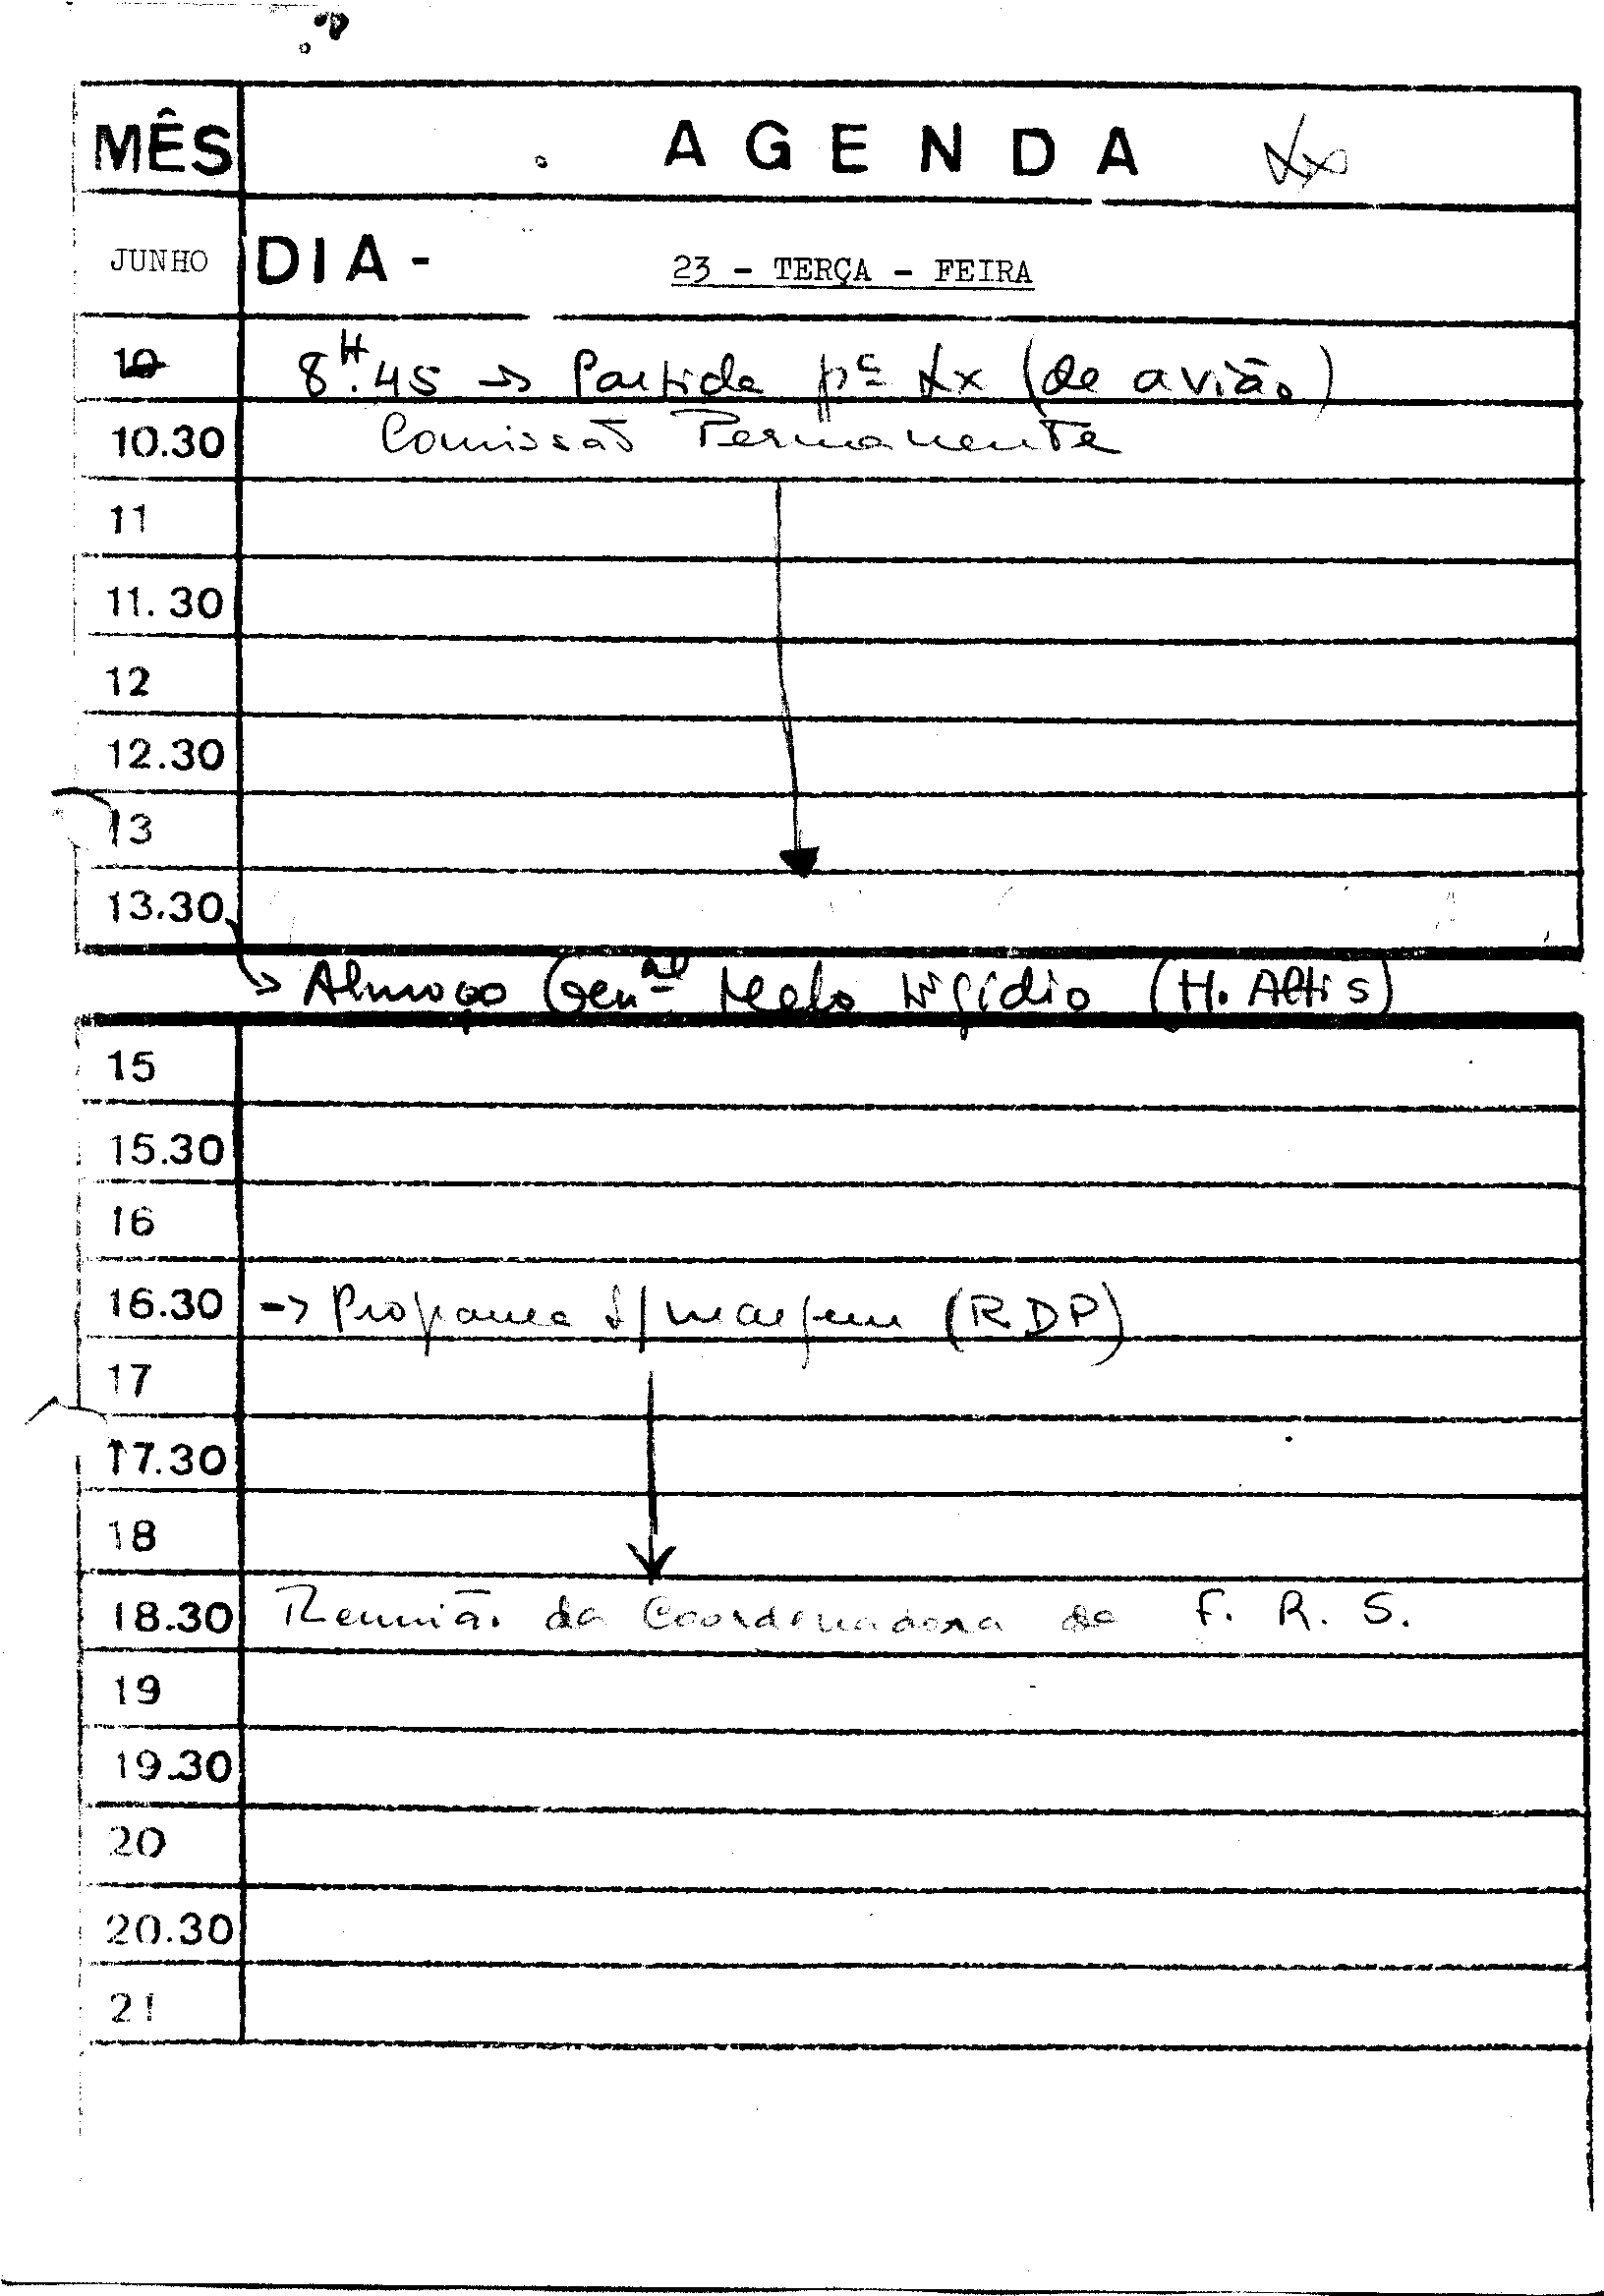 MÊS AGENDA Lx
JUNHO DIA - 23 - TERÇA - FEIRA
10 8H.45 → Partida pª Lx (de avião)
10.30 Comissão Permanente
11
11.30
12
12.30
13
13.30
→ Almoço Genal Melo Egídio (H. Altis)
15
15.30
16
16.30 → Programa s/ margem (RDP)
17
17.30
18
18.30 Reunião da Coordenadora da F. R. S.
19
19.30
20
20.30
21